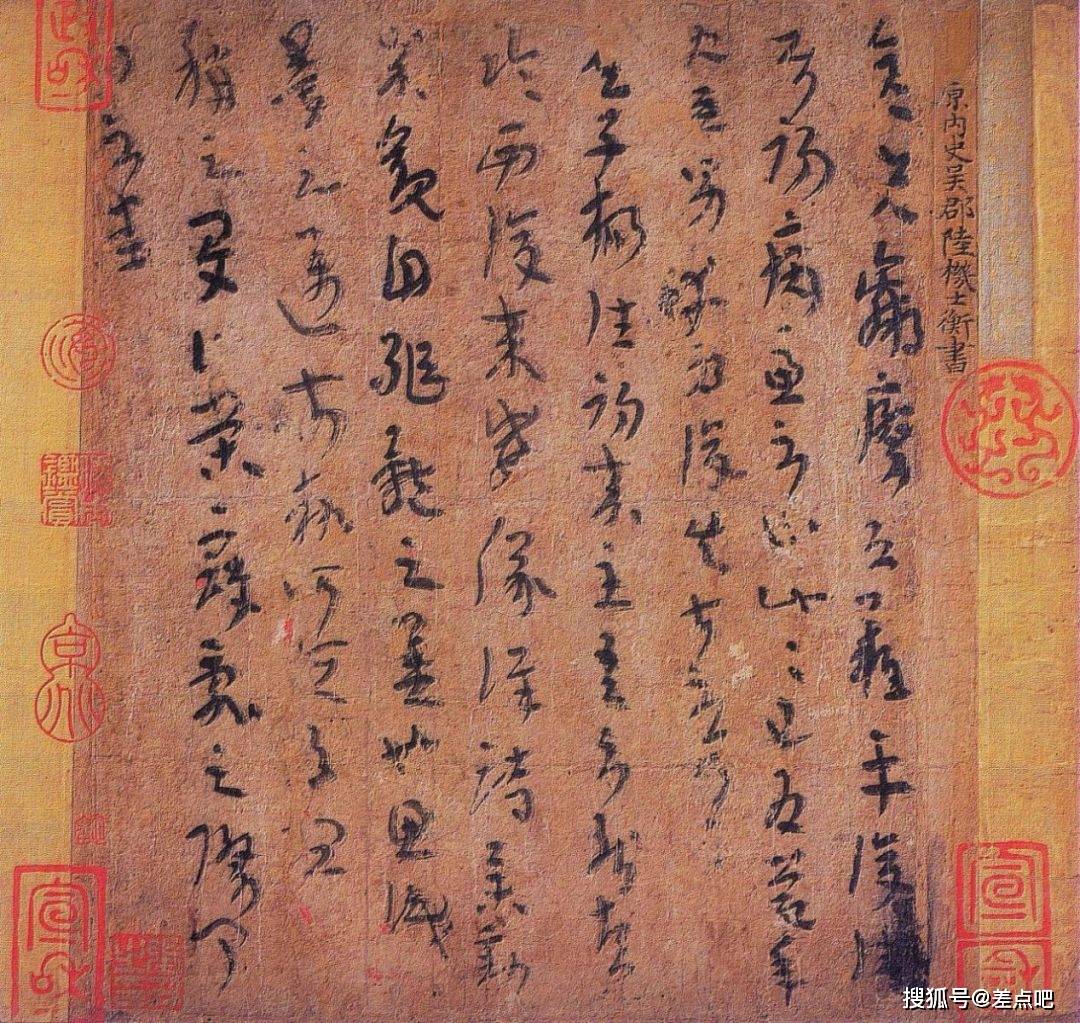 内史吴郡陸機士衡書
彦先羸瘵恐難平復往
屬初病慮不止此此已為慶承
使唯男幸為復失前憂耳
吴子楊往初来主吾不能盡
臨西復来威儀詳跱舉動
成觀自軀體之美也思識
量之邁前執所恒有宜
稱之夏伯榮寇亂之際聞
問不悉
宣龢
政龢
搜狐号@差点吧